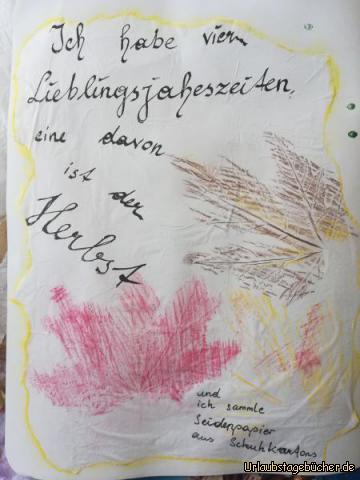 Ich habe vier
Lieblingsjaheszeiten,
eine davon
ist der
Herbst
und
ich sammle
Seidenpapier
aus Schuhkartons
Urlaubstagebücher.de